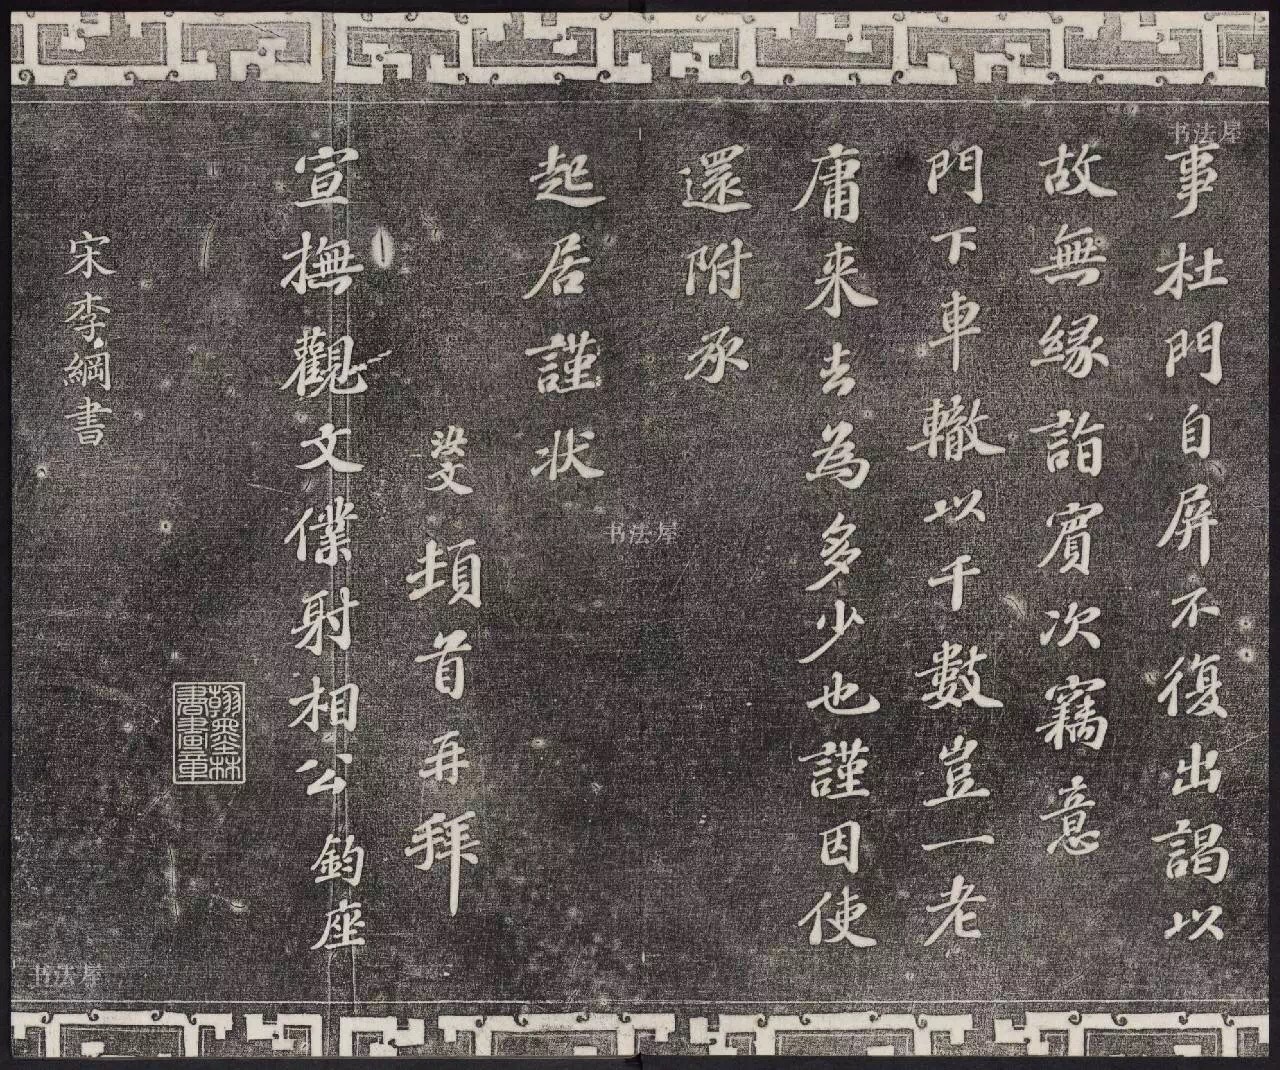 事杜門自屏不復出謁以
故無緣詣賓次竊意
門下車轍以千數豈一老
庸来去為多少也謹因使
還附承
起居謹状
汝文頓首再拜
宣撫觀文僕射相公鈞座
宋李綱書
翰墨林書畫章
书法屋
书法屋
书法屋